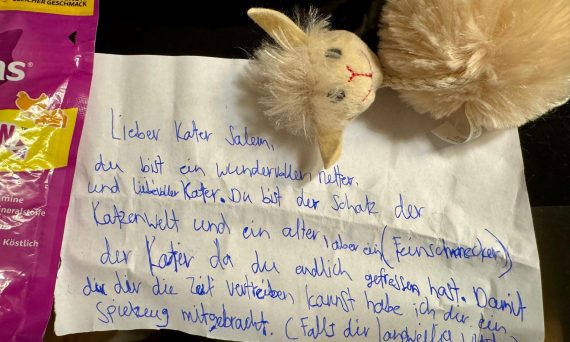 LEICHER GESCHMACK
as
W
mine
neralstoffe
Köstlich
Lieber Kater Salem,
du bist ein wundervoller, netter,
und liebevoller Kater. Du bist der Schatz der
Katzenwelt und ein alter, aber ein (Feinschmecker)
der Kater da du endlich gefressen hast. Damit
du dir die Zeit vertreiben kannst habe ich dir ein
Spielzeug mitgebracht. (Falls dir langweilig